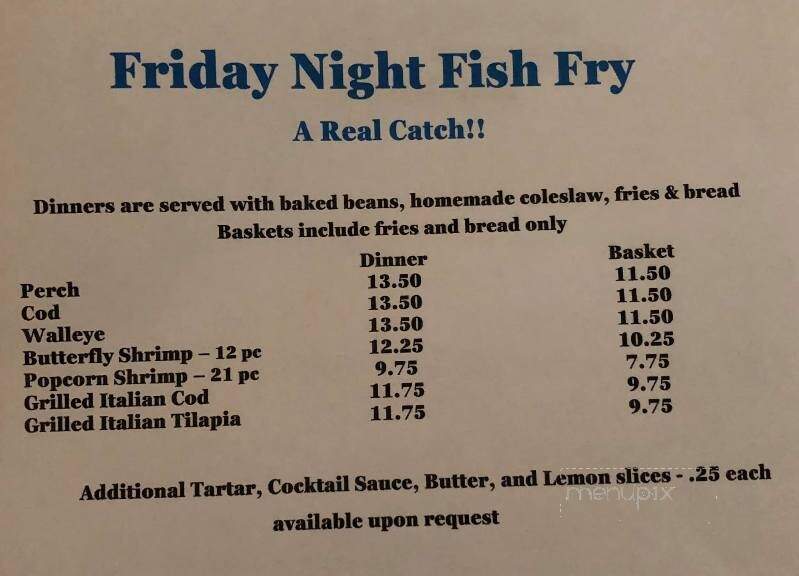 Friday Night Fish Fry
A Real Catch!!
Dinners are served with baked beans, homemade coleslaw, fries & bread
Baskets include fries and bread only
Dinner Basket
Perch 13.50 11.50
Cod 13.50 11.50
Walleye 13.50 11.50
Butterfly Shrimp – 12 pc 12.25 10.25
Popcorn Shrimp – 21 pc 9.75 7.75
Grilled Italian Cod 11.75 9.75
Grilled Italian Tilapia 11.75 9.75
Additional Tartar, Cocktail Sauce, Butter, and Lemon slices - .25 each
available upon request
menupix